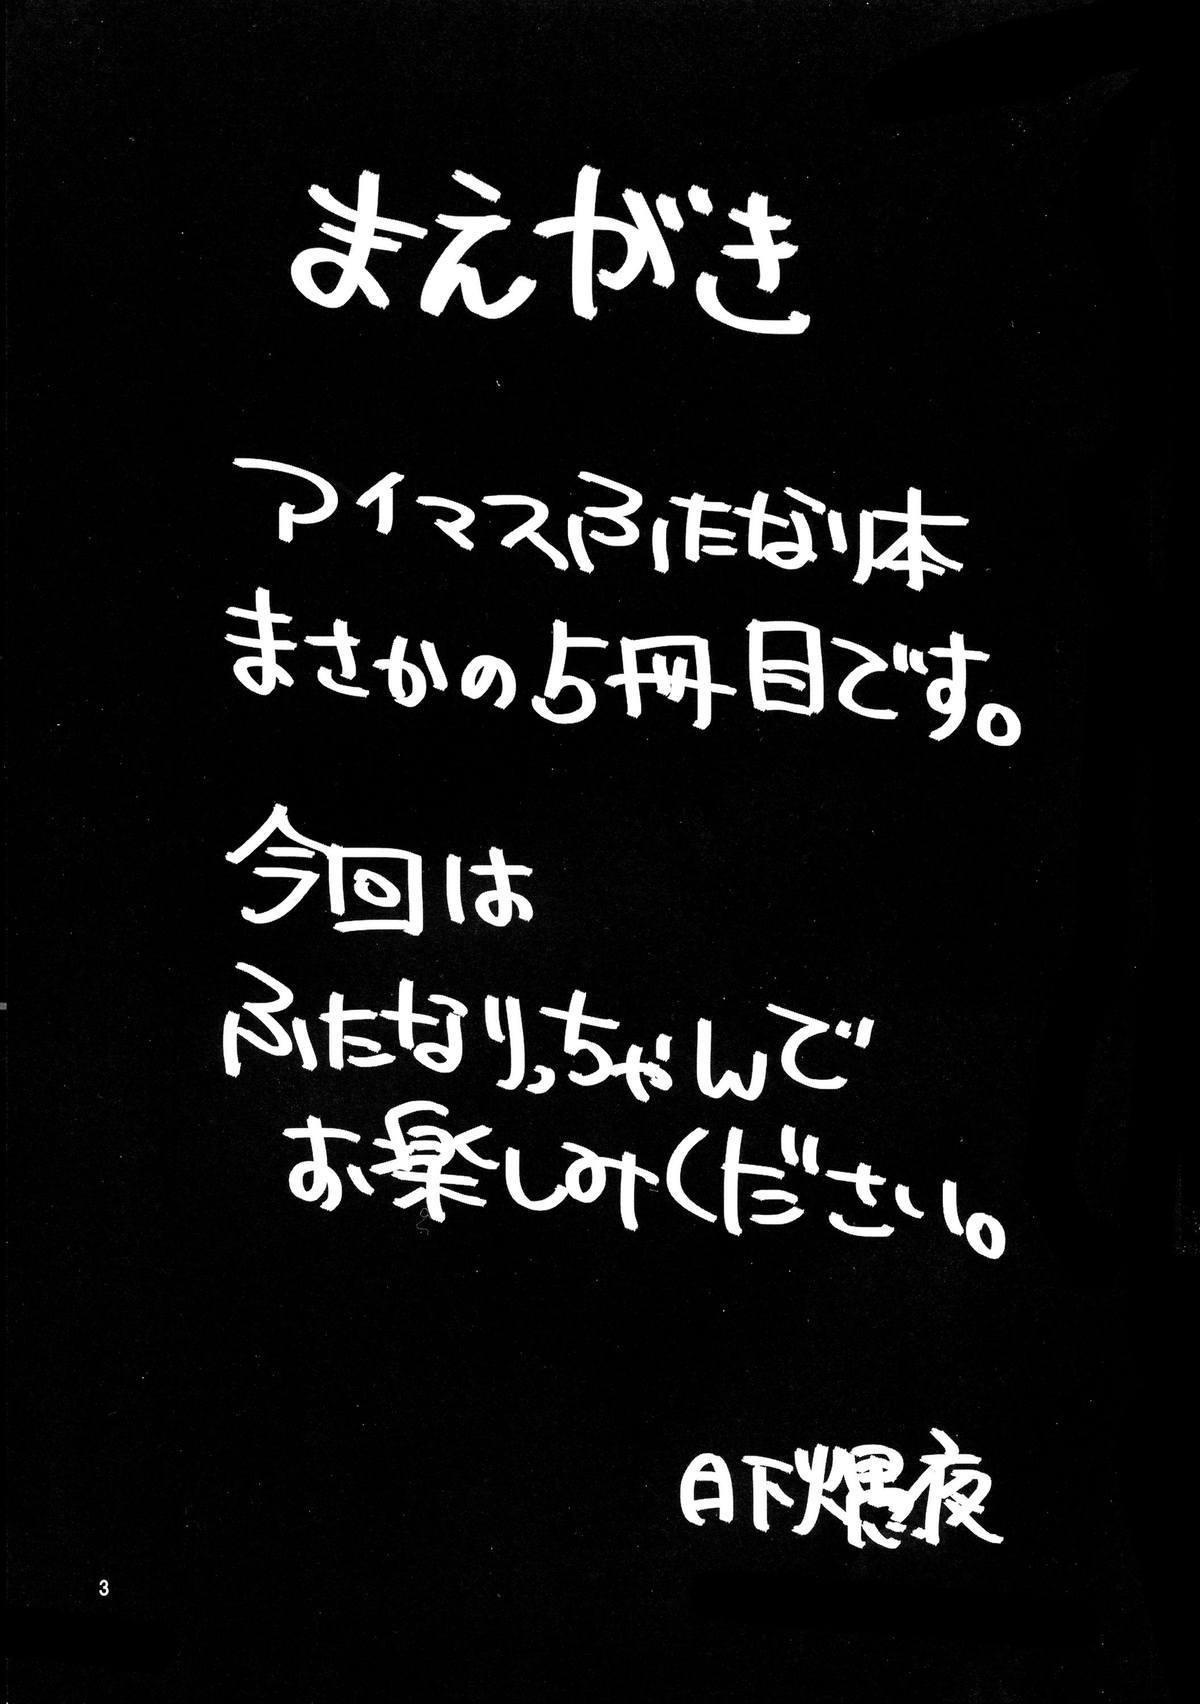 まえがき
アイマスふたなり本
まさかの5冊目です。
今回は
ふたなりっちゃんで
お楽しみください。
日下 夜
3